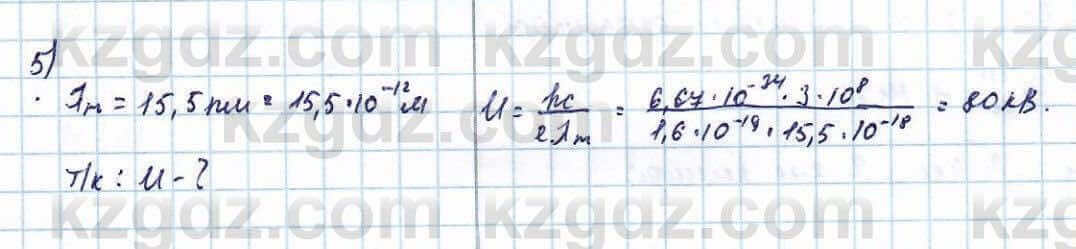 kzgdz.com kzgdz.com
5)
λₘ = 15,5 пм = 15,5·10⁻¹² м U = hc / eλₘ = 6,67·10⁻³⁴·3·10⁸ / 1,6·10⁻¹⁹·15,5·10⁻¹⁸ = 80 кВ.
Т/к: U - ?
kzgdz.com kzgdz.com